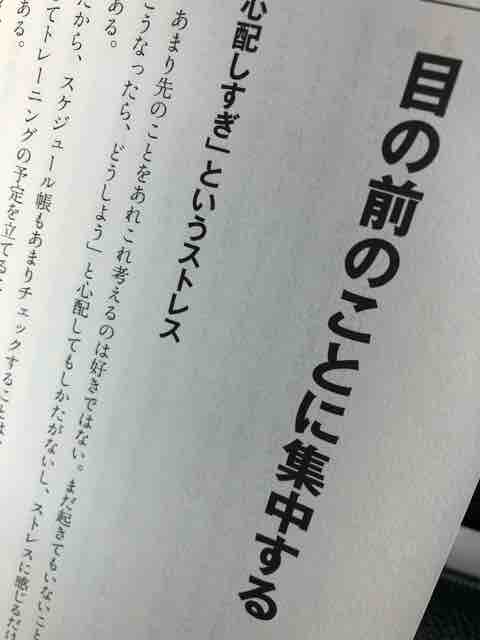 目の前のことに集中する
心配しすぎ」というストレス
あまり先のことをあれこれ考えるのは好きではない。まだ起きてもいないこと
こうなったら、どうしよう」と心配してもしかたがないし、ストレスに感じるだけ
ある。
だから、スケジュール帳もあまりチェックすることは、
してトレーニングの予定を立てる
ある。